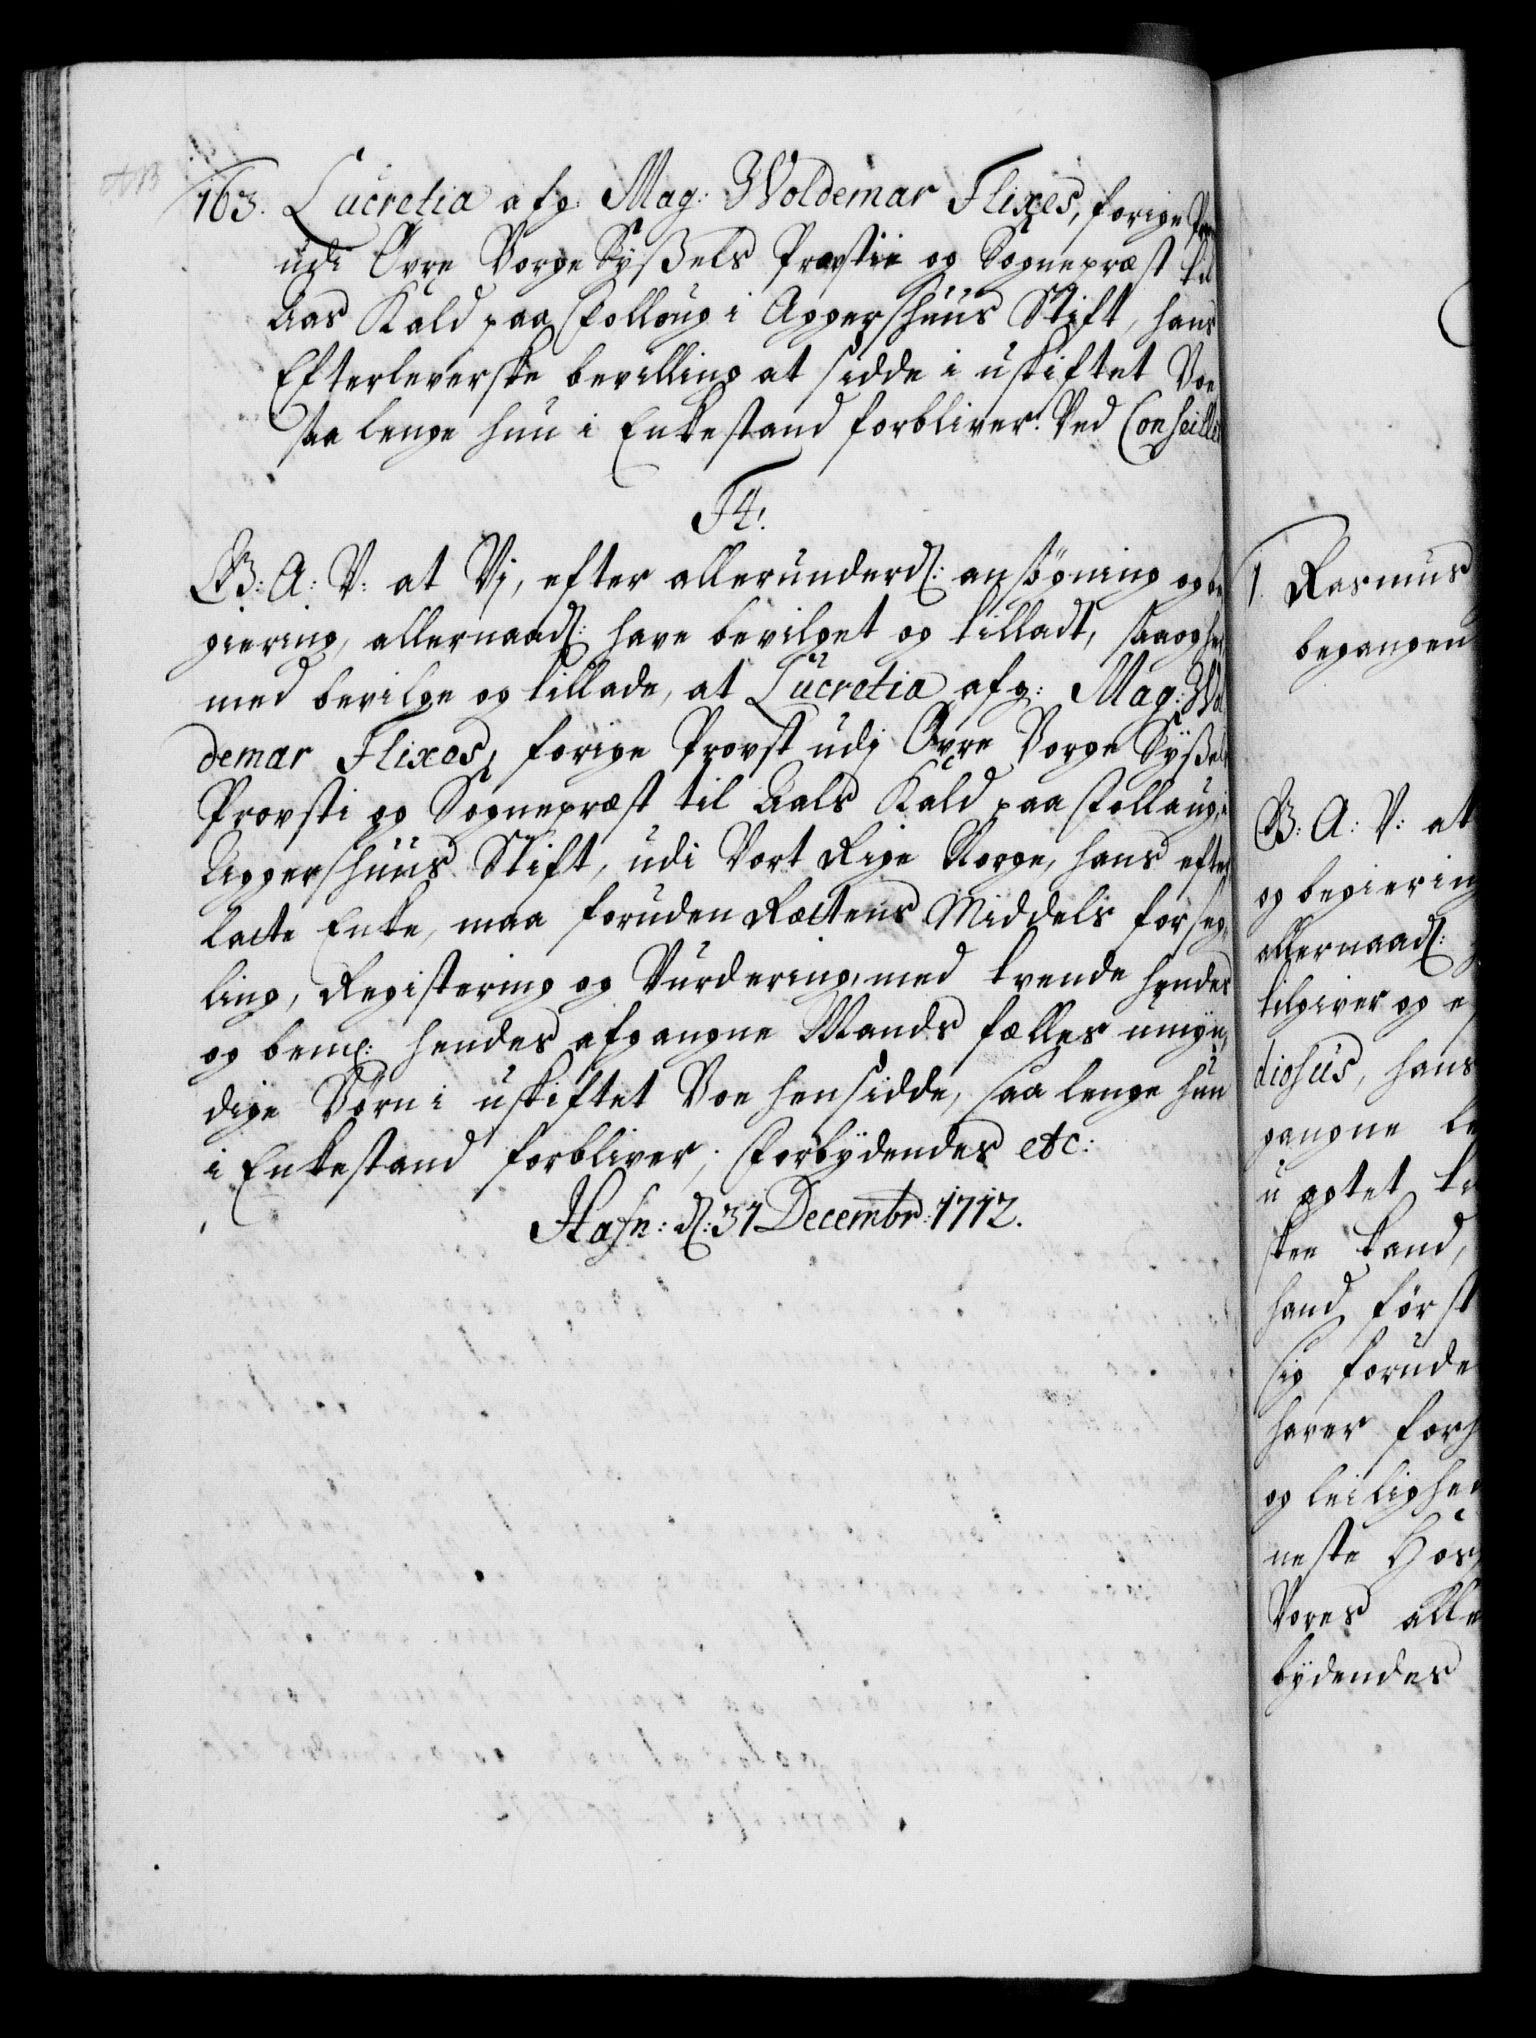 163. Lucretia afg: Mag: Woldemar Flixes, forige
udi Øvre Borge Syßels Provstie og Sognepræst til
Aas Kald paa Folloug i Aggershuus Stift, hans
Efterleverske bevilling at sidde i uskiftet Boe
saa lenge hun i Enkestand forbliver. Ved Conseillet
F4!
G: A: V: at Vj, efter allerunderd: ansøgning og be
giering, allernaad: have bevilget og tilladt, saa og her
med bevilge og tillade, at Lucretia afg: Mag: Wol
demar Flixes, forige Provst udj Øvre Borge Syßels
Provsti og Sognepræst til Aals Kald paa Follaug i
Aggershuus Stift, udi Vort Rige Norge, hans efter
lacte Enke, maa foruden Rættens Middels forseg,
ling, Registering og Vurdering, med tvende hendes
og bem: hendes afgangne Mands fælles umyn,
dige Børn i uskiftet Boe hensidde, saa lenge hun
i Enkestand forbliver; Forbydendes etc:
Hafn: d: 31 Decembr: 1712.
1. Rasmus
begangen
G: A: V: at
og begiering
allernaad:
tilgiver og
hans
gangne
kand,
hand først
sig forude
haver
og leilighed
neste
Vores alle
bydendes